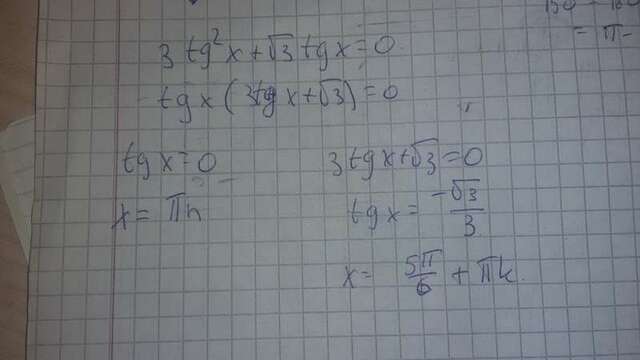 3 tg²x + √3 tgx = 0
tgx (3tgx + √3) = 0
tgx = 0
x = πn
3tgx + √3 = 0
tgx = -√3/3
x = 5π/6 + πk
= π-